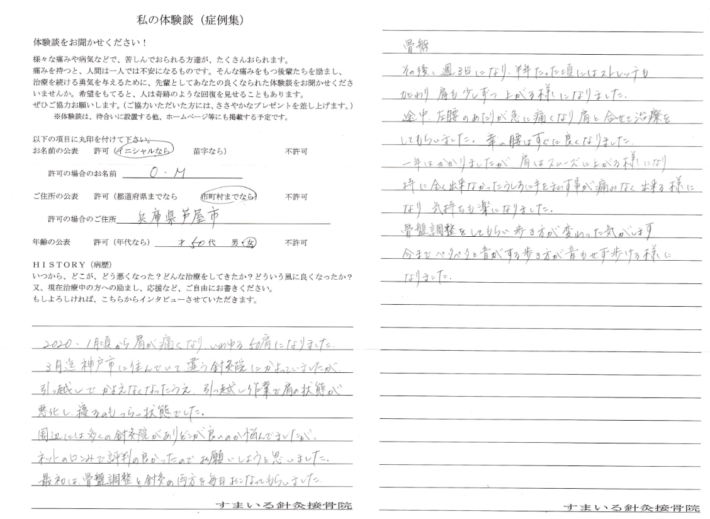 私の体験談（症例集）
体験談をお聞かせください！
様々な痛みや病気などで、苦しんでおられる方達が、たくさんおられます。
痛みを持つと、人間は一人では不安になるものです。そんな痛みをもつ後輩たちを励まし、
治療を続ける勇気を与えるために、先輩としてあなたの良くなられた体験談をお聞かせください
ませんか。希望をもてると、人は奇跡のような回復を見せることもあります。
ぜひご協力お願いします。（ご協力いただいた方には、ささやかなプレゼントを差し上げます。）
※体験談は、待合いに設置する他、ホームページ等にも掲載する予定です。
以下の項目に丸印を付けて下さい。
お名前の公表　許可（イニシャルなら　苗字なら）　不許可
許可の場合のお名前　O・M
ご住所の公表　許可（都道府県までなら　市町村までなら）　不許可
許可の場合のご住所　兵庫県芦屋市
年齢の公表　許可（年代なら）　才　50代　男・女　不許可
HISTORY（病歴）
いつから、どこが、どう悪くなった？どんな治療をしてきたか？どういう風に良くなったか？
又、現在治療中の方への励まし、応援など、ご自由にお書きください。
もしよろしければ、こちらからインタビューさせていただきます。
2020.1月頃から肩が痛くなり、いわゆる50肩になりました。
3月迄神戸市に住んでいて違う針灸院にかよっていましたが
引っ越しでかよえなくなったうえ、引っ越し作業で肩の状態が
悪化し寝るのもつらい状態でした。
周辺には多くの針灸院がありどこが良いのか悩んでましたが、
ネットの口コミで評判の良かったのでお願いしようと思いました。
最初は骨盤調整と針灸の両方を毎日おこなってもらいました
すまいる針灸接骨院
骨盤
その後、週3日になり、半年たった頃にはストレッチも
加わり肩も少しずつ上がる様になりました。
途中左腰のあたりが急に痛くなり肩と合せて治療を
してもらいました。 腰はすぐに良くなりました。
一年はかかりましたが肩はスムーズに上がる様になり
特に全く出来なかったうしろに手をまわす事が痛みなく出来る様に
なり気持ちも楽になりました。
骨盤調整をしてもらい歩き方が変わった気がします
今までペタペタと音がする歩き方が音もせず歩ける様に
なりました。
すまいる針灸接骨院